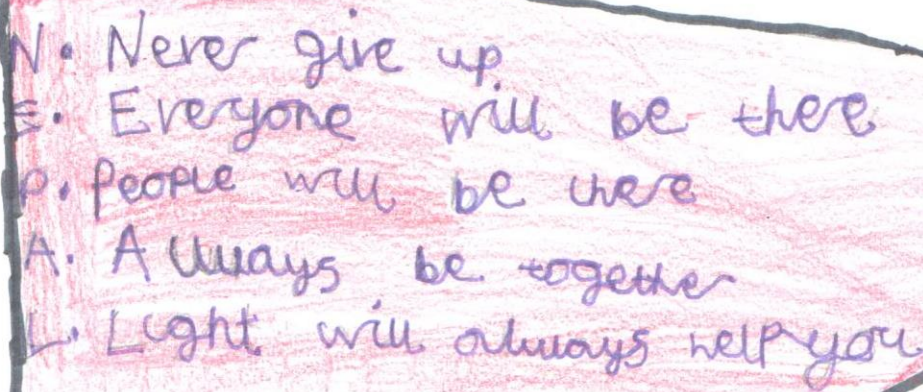 N. Never give up
E. Everyone will be there
P. People will be there
A. Always be together
L. Light will always help you